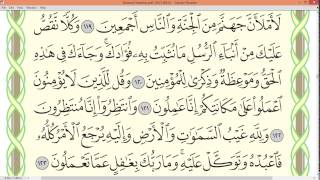 لَأَمْلَأَنَّ جَهَنَّمَ مِنَ الْجِنَّةِ وَالنَّاسِ أَجْمَعِينَ ١١٩ وَكُلًّا نَّقُصُّ
عَلَيْكَ مِنْ أَنبَاءِ الرُّسُلِ مَا نُثَبِّتُ بِهِ فُؤَادَكَ وَجَاءَكَ فِي هَذِهِ
الْحَقُّ وَمَوْعِظَةٌ وَذِكْرَى لِلْمُؤْمِنِينَ ١٢٠ وَقُل لِّلَّذِينَ لَا يُؤْمِنُونَ
اعْمَلُوا عَلَى مَكَانَتِكُمْ إِنَّا عَامِلُونَ ١٢١ وَانتَظِرُوا إِنَّا مُنتَظِرُونَ
١٢٢ وَلِلَّهِ غَيْبُ السَّمَاوَاتِ وَالْأَرْضِ وَإِلَيْهِ يُرْجَعُ الْأَمْرُ كُلُّهُ
فَاعْبُدْهُ وَتَوَكَّلْ عَلَيْهِ وَمَا رَبُّكَ بِغَافِلٍ عَمَّا تَعْمَلُونَ ١٢٣